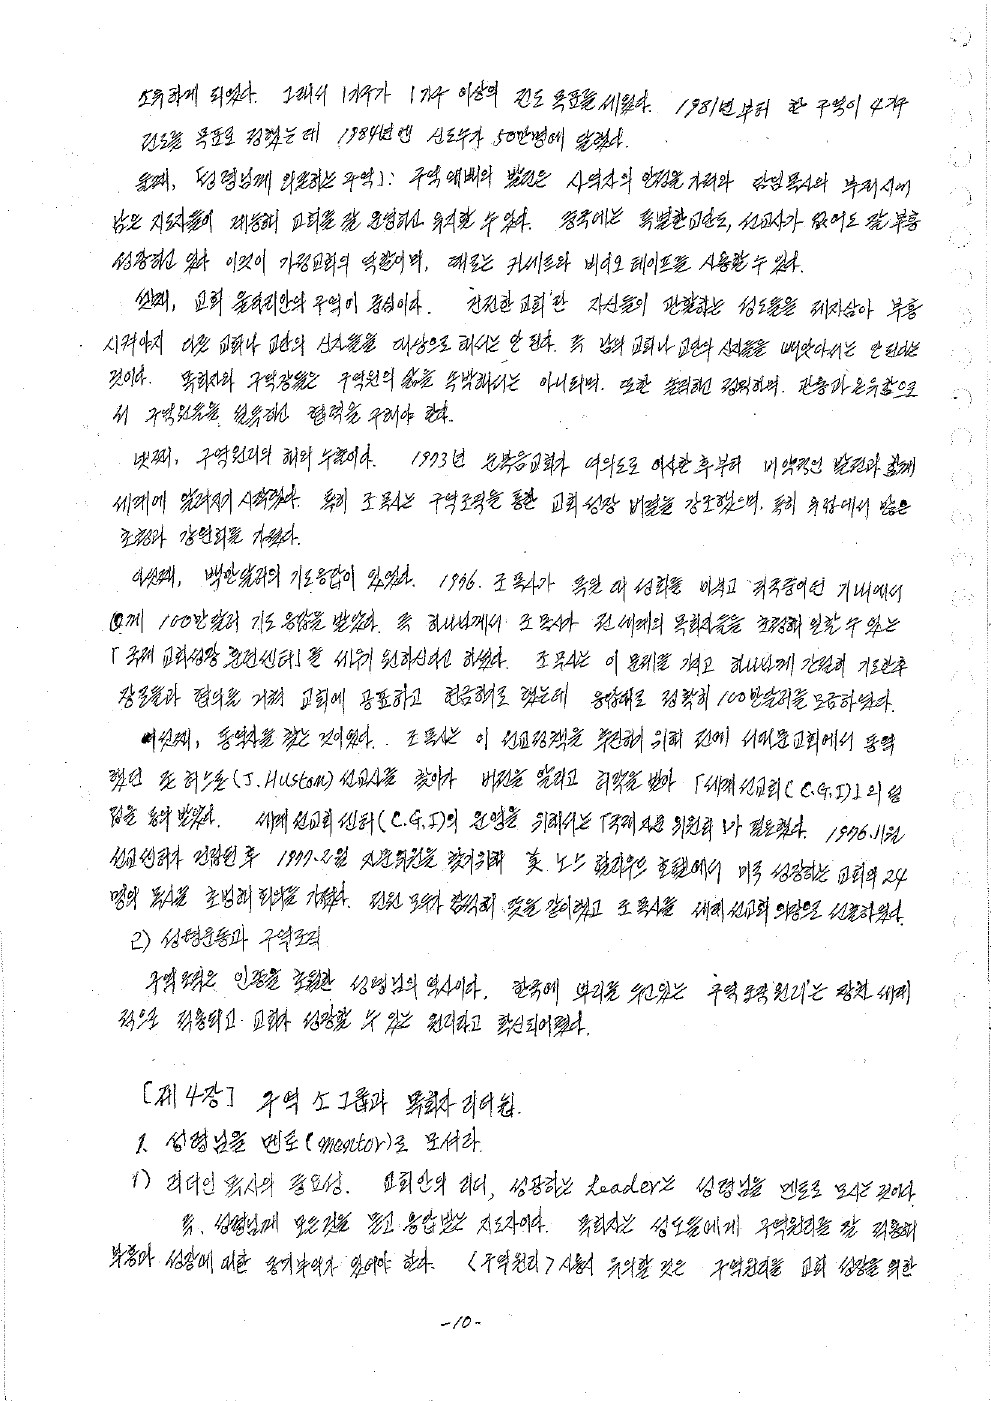 소유하게 되었다. 그래서 1가구가 1가구 이상의 전도 목표를 세웠다. 1981년부터 한 구역이 4가구
전도를 목표로 정했는데 1984년엔 신도수가 50만명에 달했다.
둘째, 「성령님께 의탁하는 구역」: 구역예배의 발전은 사역자의 안정을 가져와 담임목사의 부재시에
남은 지도자들이 대동해 교회를 잘 운영하고 유지할 수 있다. 중국에는 특별한 교단도, 선교사가 없어도 잘 부흥
성장하고 있다 이것이 가정교회의 역할이며, 때로는 카세트와 비디오 테이프를 사용할 수 있다.
셋째, 교회 울타리안의 구역이 중심이다. 건전한 교회란 자신들의 관할하는 성도들을 제자삼아 부흥
시켜야지 다른 교회나 교단의 신자들을 대상으로 해서는 안 된다. 즉 남의 교회나 교단의 신자들을 빼앗아서는 안된다는
것이다. 목회자와 구역장들은 구역원의 삶을 속박해서는 아니되며. 또한 솔직하고 정직하며. 관용과 온유함으로
서 구역원들을 설득하고 협력을 구해야 한다.
넷째, 구역원리의 해외 수출이다. 1973년 순복음교회가 여의도로 이사한 후부터 비약적인 발전과 함께
세계에 알려지기 시작했다. 특히 조 목사는 구역조직을 통한 교회성장 비결을 강조했으며. 특히 유럽에서 많은
초청과 강연회를 가졌다.
다섯째, 백만달러의 기도응답이 있었다. 1976. 조 목사가 독일 대 성회를 마치고 귀국중이던 기내에서
에게 100만달러 기도 응답을 받았다. 즉 하나님께서 조 목사가 전 세계의 목회자들을 초청해 일할 수 있는
「국제 교회성장 훈련센터」를 세우기 원하신다고 하셨다. 조 목사는 이 문제를 가지고 하나님께 간절히 기도한후
장로들과 협의를 거쳐 교회에 공표하고 헌금하기로 했는데 응답대로 정확히 100만달러를 모금하였다.
여섯째, 동역자를 찾는 것이었다. 조 목사는 이 선교정책을 추진하기 위해 전에 서대문교회에서 동역
했던 존 허스톤(J. Huston) 선교사를 찾아가 비전을 알리고 허락을 받아 「세계선교회(C.G.I)」의 설
립을 동의 받았다. 세계선교회 센터(C.G.I)의 운영을 위해서는 「국제자문 위원회」가 필요했다. 1976.11월
선교센터가 건립된 후 1977.2월 자문위원을 찾기위해 美. 노스 할리우드 호텔에서 미국 성장하는 교회의 24
명의 목사를 초빙해 회의를 가졌다. 전원 모두가 참석해 뜻을 같이했고 조 목사를 세계선교회 의장으로 선출하였다.
2) 성령운동과 구역조직
구역조직은 인종을 초월한 성령님의 역사이다. 한국에 뿌리를 두고있는 '구역조직 원리'는 장차 세계
적으로 적용되고 교회가 성장할 수 있는 원리라고 확신되어졌다.
[제4장] 구역 소그룹과 목회자 리더쉽.
1. 성령님을 멘토(mentor)로 모셔라.
1) 리더인 목사의 중요성. 교회안의 리더, 성공하는 Leader는 성령님을 멘토로 모시는 것이다.
즉, 성령님께 모든것을 묻고 응답받는 지도자이다. 목회자는 성도들에게 구역원리를 잘 적용해
부흥과 성장에 대한 동기부여가 있어야 한다. 〈구역원리〉 사용시 유의할 것은 구역원리를 교회 성장을 위한
-10-